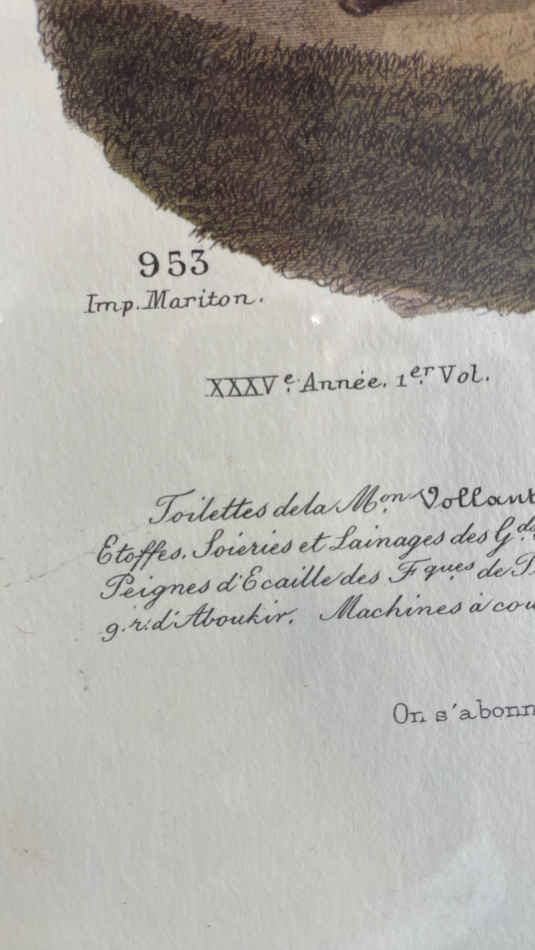 953
Imp. Mariton.
XXXVe. Année. 1er. Vol.
Toilettes de la Mon. Vollant
Etoffes. Soieries et Lainages des Gds.
Peignes d'Ecaille des Fques. de
9. r. d'Aboukir. Machines à cou
On s'abonn